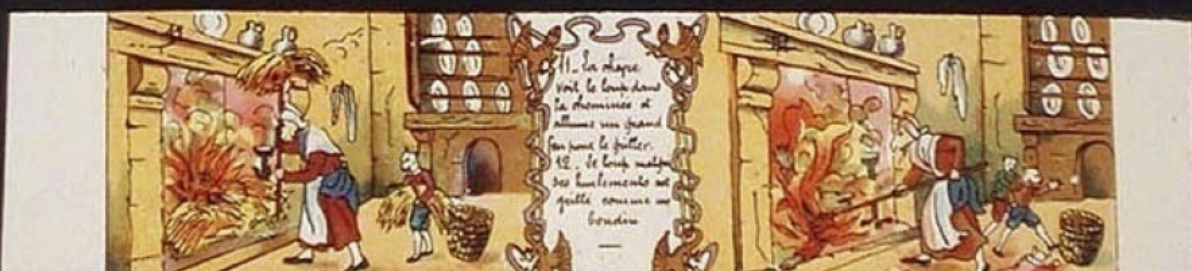 11 _ La mère
voit le loup dans
la cheminée et
allume un grand
feu pour le griller.
12 _ Le loup malgré
ses hurlements est
grillé comme un
boudin